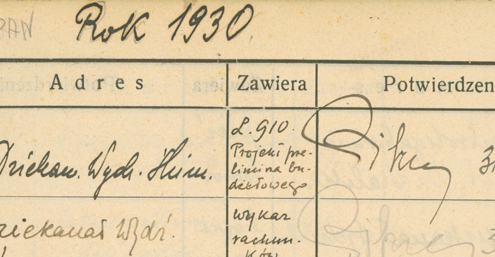 Rok 1930.
Adres Zawiera Potwierdzen
Dziekan. Wydz. Hum. L. 910.
Projekt pre-
limina bu-
dżetowego
Dziekanat Wydz. wykaz
rachun-
ków